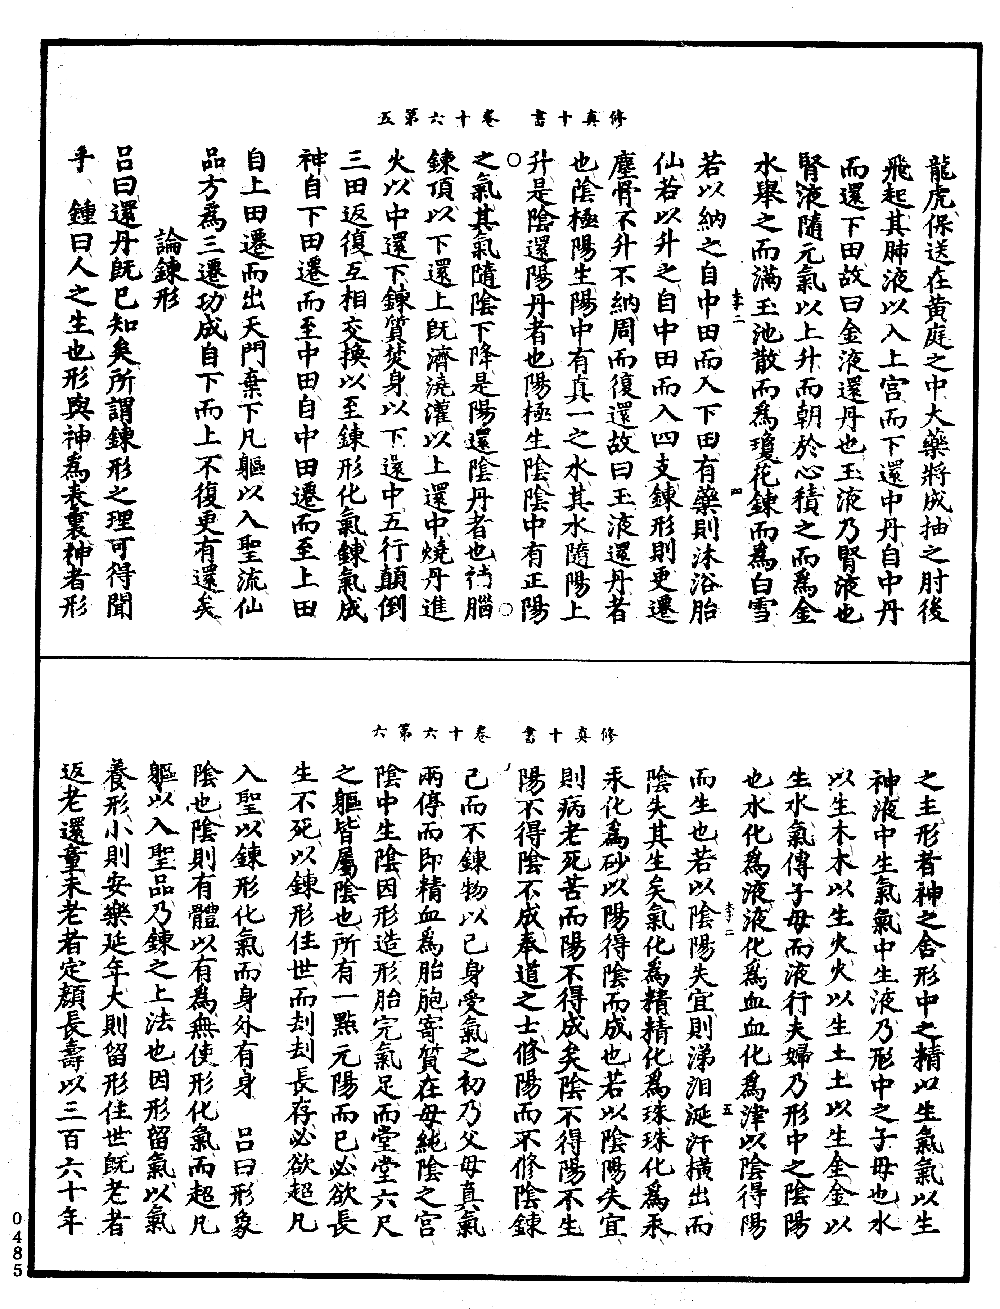 修真十書　卷十六第五
龍虎保送在黃庭之中大藥將成抽之肘後
飛起其肺液以入上宮而下還中丹自中丹
而還下田故曰金液還丹也玉液乃腎液也
腎液隨元氣以上升而朝於心積之而為金
水舉之而滿玉池散而為瓊花鍊而為白雪
若以納之自中田而入下田有藥則沐浴胎
仙若以升之自中田而入四支鍊形則更遷
塵骨不升不納周而復還故曰玉液還丹者
也陰極陽生陽中有真一之水其水隨陽上
升是陰還陽丹者也陽極生陰陰中有正陽
之氣其氣隨陰下降是陽還陰丹者也補腦
鍊頂以下還上既濟澆灌以上還中燒丹進
火以中還下鍊質焚身以下還中五行顛倒
三田返復互相交換以至鍊形化氣鍊氣成
神自下田遷而至中田自中田遷而至上田
自上田遷而出天門棄下凡軀以入聖流仙
品方為三遷功成自下而上不復更有還矣
論鍊形
呂曰還丹既已知矣所謂鍊形之理可得聞
乎　鍾曰人之生也形與神為表裏神者形
修真十書　卷十六第六
之主形者神之舍形中之精以生氣氣以生
神液中生氣氣中生液乃形中之子母也水
以生木木以生火火以生土土以生金金以
生水氣傳子母而液行夫婦乃形中之陰陽
也水化為液液化為血血化為津以陰得陽
而生也若以陰陽失宜則涕泪涎汗橫出而
陰失其生矣氣化為精精化為珠珠化為汞
汞化為砂以陽得陰而成也若以陰陽失宜
則病老死苦而陽不得成矣陰不得陽不生
陽不得陰不成奉道之士修陽而不修陰鍊
己而不鍊物以己身受氣之初乃父母真氣
兩停而即精血為胎胞寄質在母純陰之宮
陰中生陰因形造形胎完氣足而堂堂六尺
之軀皆屬陰也所有一點元陽而已必欲長
生不死以鍊形住世而刦刦長存必欲超凡
入聖以鍊形化氣而身外有身　呂曰形象
陰也陰則有體以有為無使形化氣而超凡
軀以入聖品乃鍊之上法也因形留氣以氣
養形小則安樂延年大則留形住世既老者
返老還童未老者定顏長壽以三百六十年
0485